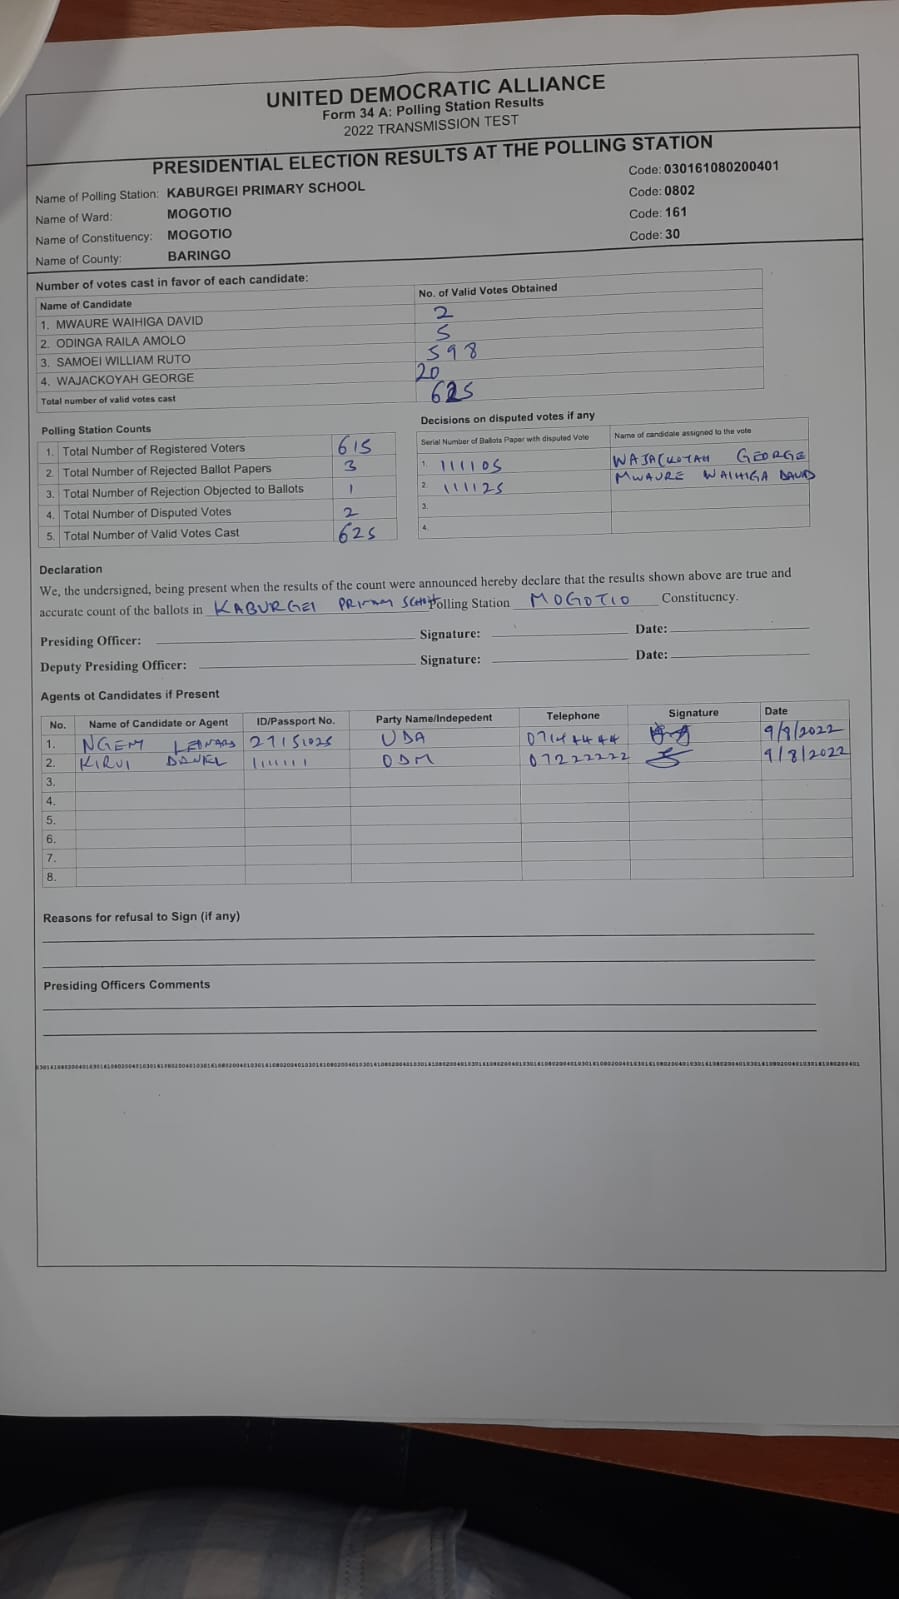 UNITED DEMOCRATIC ALLIANCE
Form 34 A: Polling Station Results
2022 TRANSMISSION TEST
PRESIDENTIAL ELECTION RESULTS AT THE POLLING STATION
Name of Polling Station: KABURGEI PRIMARY SCHOOL Code: 030161080200401
Name of Ward: MOGOTIO Code: 0802
Name of Constituency: MOGOTIO Code: 161
Name of County: BARINGO Code: 30
Number of votes cast in favor of each candidate:
Name of Candidate No. of Valid Votes Obtained
1. MWAURE WAIHIGA DAVID 2
2. ODINGA RAILA AMOLO 5
3. SAMOEI WILLIAM RUTO 598
4. WAJACKOYAH GEORGE 20
Total number of valid votes cast 625
Polling Station Counts
1. Total Number of Registered Voters 615
2. Total Number of Rejected Ballot Papers 3
3. Total Number of Rejection Objected to Ballots 1
4. Total Number of Disputed Votes 2
5. Total Number of Valid Votes Cast 625
Decisions on disputed votes if any
Serial Number of Ballots Paper with disputed Vote Name of candidate assigned to the vote
1. 111105 WAJACKOYAH GEORGE
2. 111125 MWAURE WAIHIGA DAVID
3.
4.
Declaration
We, the undersigned, being present when the results of the count were announced hereby declare that the results shown above are true and
accurate count of the ballots in KABURGEI PRIMARY SCHOOL Polling Station MOGOTIO Constituency.
Presiding Officer: Signature: Date:
Deputy Presiding Officer: Signature: Date:
Agents ot Candidates if Present
No. Name of Candidate or Agent ID/Passport No. Party Name/Indepedent Telephone Signature Date
1. 27151025 UDA 07144444 9/8/2022
2. KIRUI DANIEL 1111111 ODM 07222222 9/8/2022
3.
4.
5.
6.
7.
8.
Reasons for refusal to Sign (if any)
Presiding Officers Comments